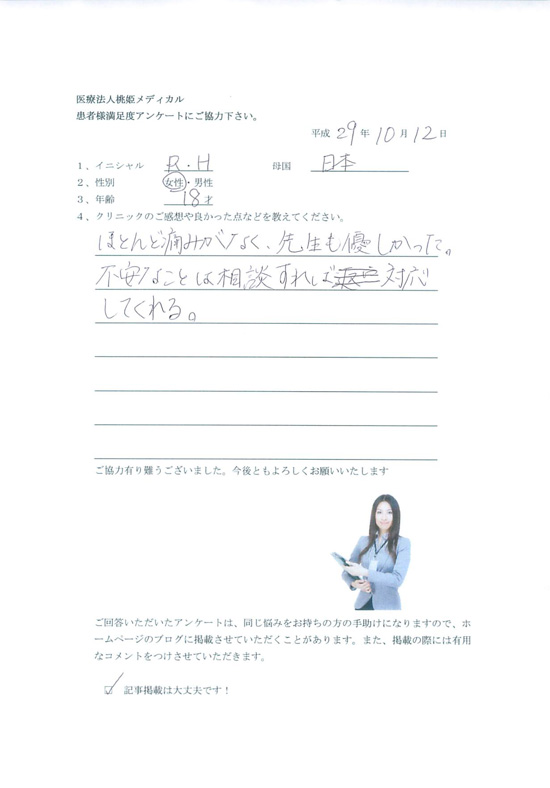 医療法人桃姫メディカル
患者様満足度アンケートにご協力下さい。
平成 29 年 10 月 12 日
1、イニシャル R.H 母国 日本
2、性別 女性・男性
3、年齢 18 才
4、クリニックのご感想や良かった点などを教えてください。
ほとんど痛みがなく、先生も優しかった。
不安なことは相談すれば対応
してくれる。
ご協力有り難うございました。今後ともよろしくお願いいたします
ご回答いただいたアンケートは、同じ悩みをお持ちの方の手助けになりますので、ホ
ームページのブログに掲載させていただくことがあります。また、掲載の際には有用
なコメントをつけさせていただきます。
☑ 記事掲載は大丈夫です!